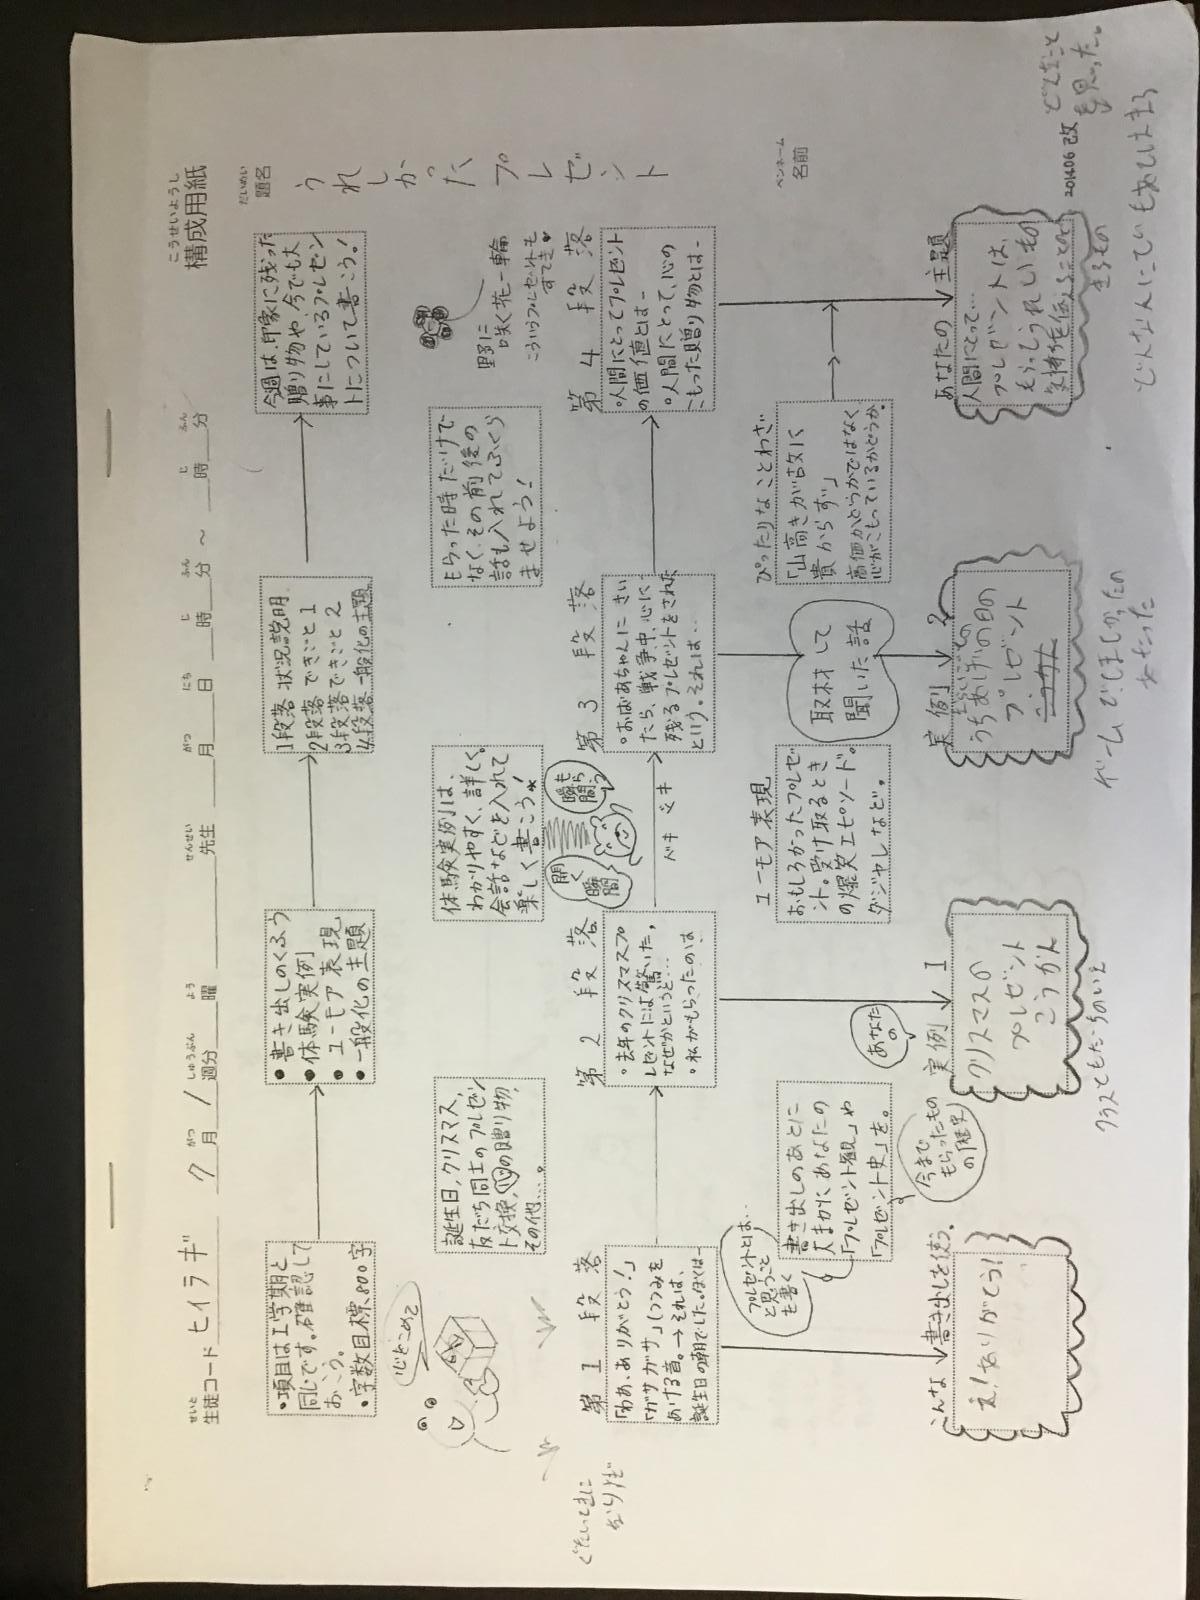 こうせいようし
構成用紙
せいと
生徒コード ヒイラギ 9月1週分 曜 先生 月 日 時 分 ～ 時 分
だいめい
題名
うれしかったプレゼント
ペンネーム
名前
・項目は1学期と
同じです。確認して
おこう。
・字数目標、800字
● 書き出しのくふう
● 体験実例
● ユーモア表現
● 一般化の主題
1段落 状況説明
2段落 できごと1
3段落 できごと2
4段落 一般化の主題
今週は、印象に残った
贈り物や、今でも大
事にしているプレゼン
トについて書こう!
心をこめて
誕生日、クリスマス、
友だち同士のプレゼン
ト交換、の贈り物、
その他…。
体験実例は、
わかりやすく、詳しく。
会話などを入れて
楽しく書こう!
もらった時だけで
なく、その前後の
話も入れてふくら
ませよう!
野に
咲く花一輪
こういうプレゼントも
すてき
第1段落
「わあ、ありがとう!」
「ガサガサ」(つつみを
あける音。→それは、
誕生日の朝でした。ぼくは―
第2段落
・去年のクリスマスプ
レゼントには驚いた。
なぜかというと…
・私がもらったのは、
開く
瞬間
瞬も
開らう
第3段落
・おばあちゃんにきい
たら、戦争中、心に
残るプレゼントをされた
という。それは…
第4段落
・人間にとってプレゼント
の価値とは―
・人間にとって、心の
こもった贈り物とは―
プレゼントとは…
と思うこと
も書く
書き出しのあとに
大まかにあなたの
「プレゼント観」や
「プレゼント史」を。
今まで
もらったもの
の歴史
ユーモア表現
おもしろかったプレゼ
ント。受け取るとき
の爆笑エピソード。
ダジャレなど。
取材して
聞いた話
ぴったりなことわざ
「山高きが故に
貴からず」
高価かどうかではなく
心がこもっているかどうか。
こんな書き出しを使う。
え!ありがとう!
あなた
の
実例1
クリスマスの
プレゼント
こうかん
クラスともだちのいえ
実例2
うちあげの日の
プレゼント
あなたの主題
人間にとって…
プレゼントは、
2014.06改
どんなこと
を思った。